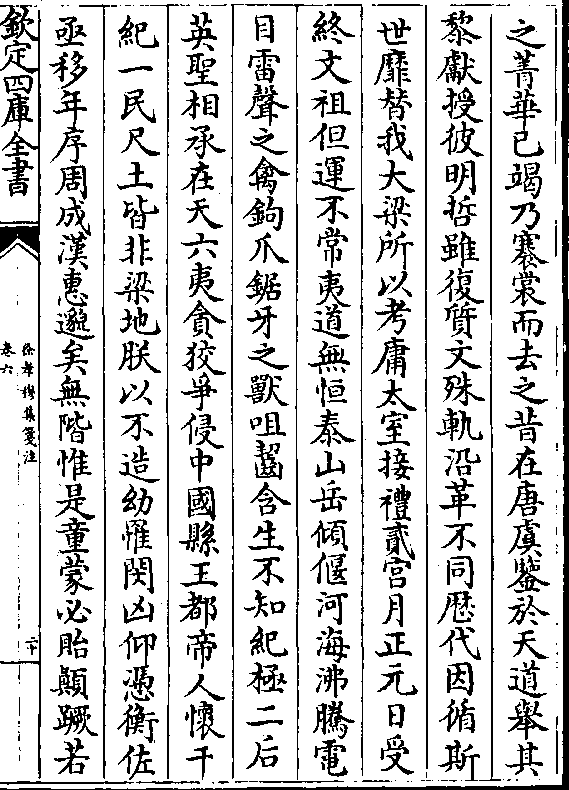 之菁華已竭乃褰裳而去之昔在唐虞鑒於天道舉其
黎獻授彼明哲雖復質文殊軌沿革不同歴代因循斯
世靡替我大梁所以考庸太室接禮貳宫月正元日受
終文祖但運不常夷道無恒泰山岳傾偃河海沸騰電
目雷聲之禽鉤爪鋸牙之獸咀齧含生不知紀極二后
英聖相承在天六夷貪狡爭侵中國縣王都帝人懷干
紀一民尺土皆非梁地朕以不造幼罹閔凶仰憑衡佐
亟移年序周成漢惠邈矣無階惟是童蒙必貽顛蹶若
欽定四庫全書
徐孝穆集箋注
卷六